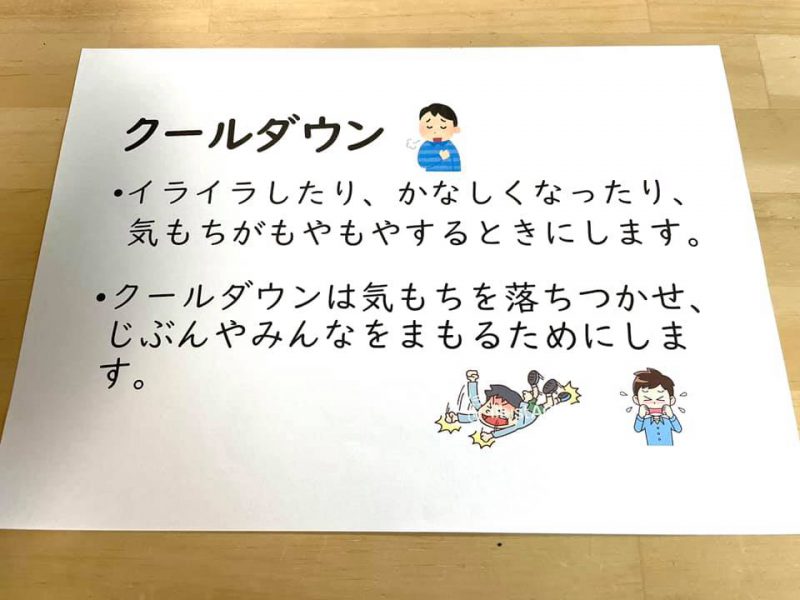 クールダウン
•イライラしたり、かなしくなったり、
気もちがもやもやするときにします。
•クールダウンは気もちを落ちつかせ、
じぶんやみんなをまもるためにしま
す。